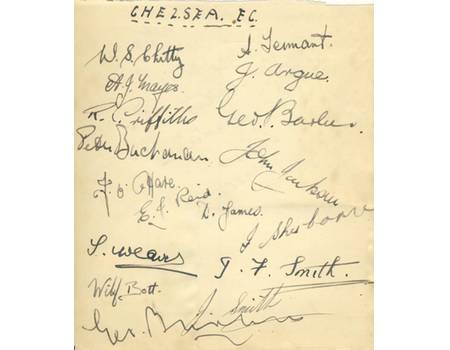 CHELSEA. F.C.
W. S. Chitty A. Tennant.
A. J. Mayes J. Argue.
R. Griffiths Geo. Barber.
Peter Buchanan John Jackson
J. O'Hare.
E. J. Reid D. James. J Sherborne
S. Weaver T. F. Smith.
Wilf. Bott. J. Smith
Geo.